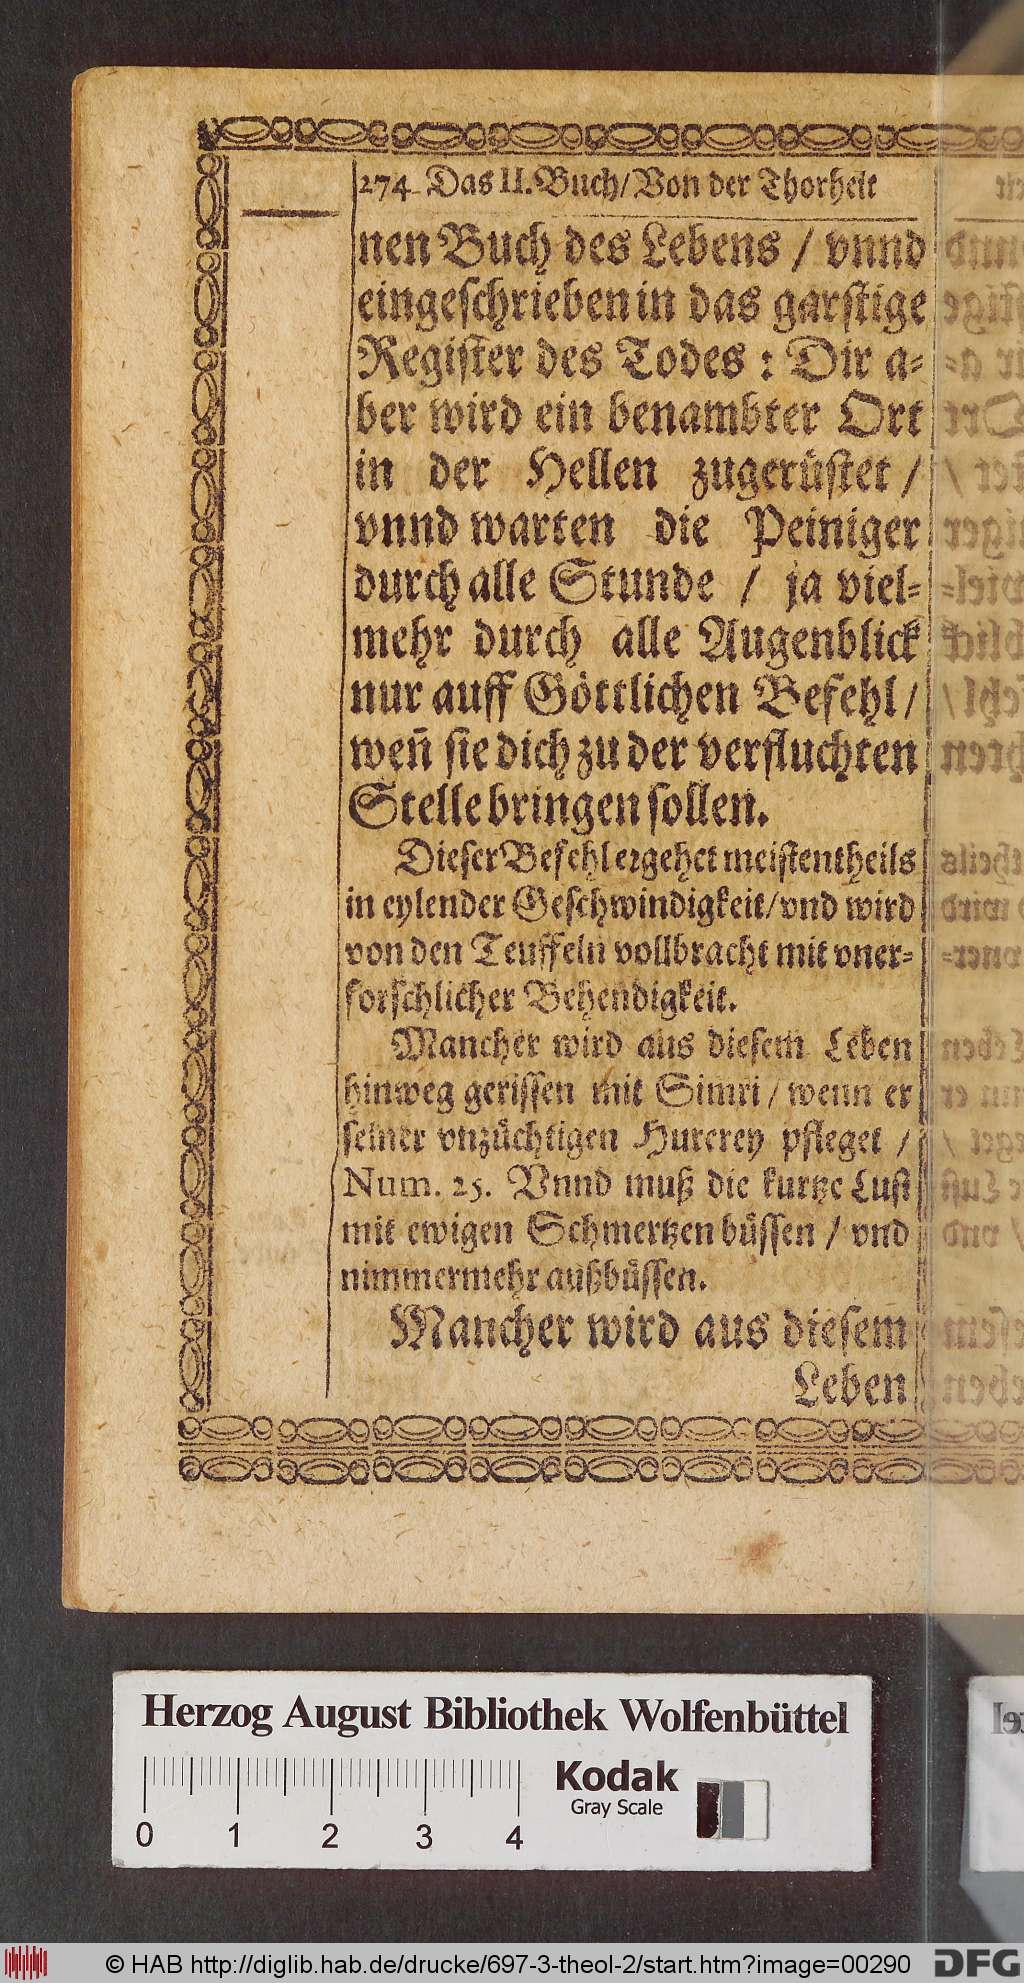 274 Das II. Buch/Von der Thorheit
nen Buch des Lebens / vnnd
eingeschrieben in das garstige
Register des Todes : Dir a-
ber wird ein benambter Ort
in der Hellen zugerüstet /
vnnd warten die Peiniger
durch alle Stunde / ja viel-
mehr durch alle Augenblick
nur auff Göttlichen Befehl /
weñ sie dich zu der verfluchten
Stelle bringen sollen.
Dieser Befehl ergehet meistentheils
in eylender Geschwindigkeit/vnd wird
von den Teuffeln vollbracht mit vner-
forschlicher Behendigkeit.
Mancher wird aus diesem Leben
hinweg gerissen mit Simri / wenn er
seiner vnzüchtigen Hurerey pfleget /
Num. 25. Vnnd muß die kurtze Lust
mit ewigen Schmertzen büssen / vnd
nimmermehr außbüssen.
Mancher wird aus diesem
Leben
Herzog August Bibliothek Wolfenbüttel
0 1 2 3 4
Kodak
Gray Scale
© HAB http://diglib.hab.de/drucke/697-3-theol-2/start.htm?image=00290
DFG